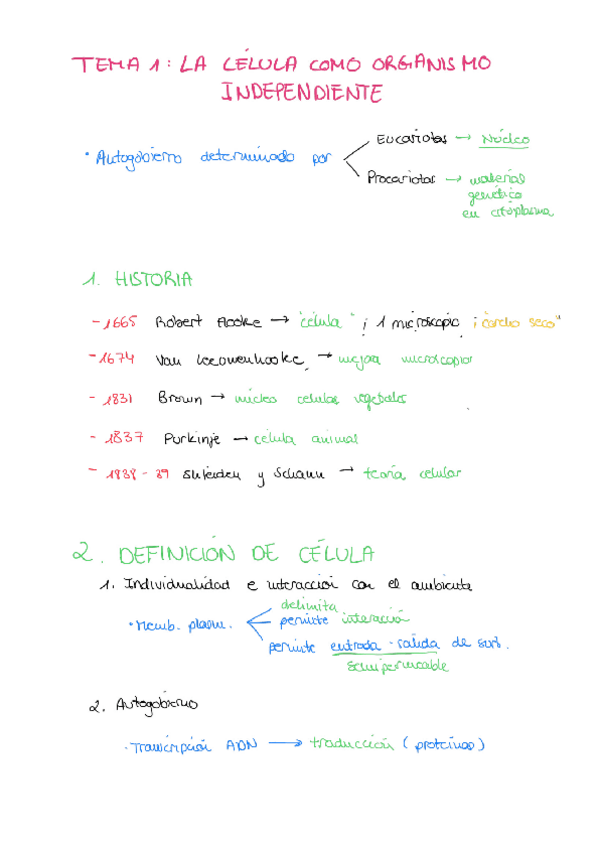 TEMA 1: LA CÉLULA COMO ORGANISMO
INDEPENDIENTE
· Autogobierno determinado por
Eucariotas → Núcleo
Procariotas → material
genético
en citoplasma
1. HISTORIA
- 1665 Robert Hooke → "célula" ; 1 microscopio ;
- 1674 Van Leeowenhooke, → mejora microscopios
- 1831 Brown → núcleo celulas vegetales
- 1837 Purkinje → célula animal
- 1838 - 39 y Schann → teoría celular
2. DEFINICIÓN DE CÉLULA
1. Individualidad e interacción con el ambiente
· Memb. plasm.
delimita
permite interacción
permite entrada - salida de sust.
Semipermeable
2. Autogobierno
· Transcripción ADN → traducción (proteínas)